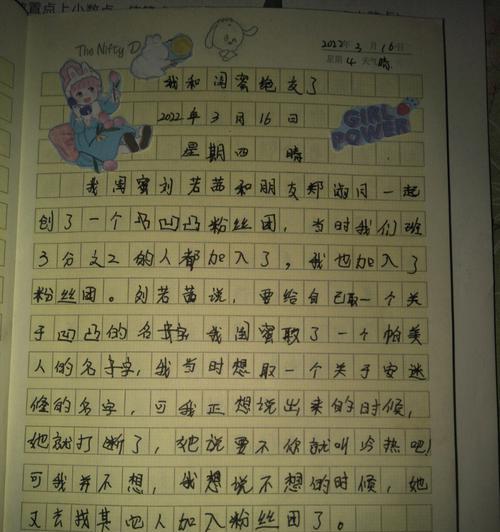 The Nifty D
2022年3月16日
星期4 天气晴
我和闺蜜绝友了
2022年3月16日
星期四 晴
GIRL POWER
我闺蜜刘若茜和朋友郑淑月一起
创了一个马凹凸粉丝团，当时我们班
3分之2的人都加入了，我也加入了
粉丝团。刘若茜说，要给自己取一个关
于凹凸的名字，我闺蜜取了一个帕美
人的名字，我当时想取一个关于安迷
修的名字，可我正想说出来的时候，
她就打断了，她说要不你就叫冷热吧！
可我并不想，我想说不想的时候，她
又去找其他人加入粉丝团了。